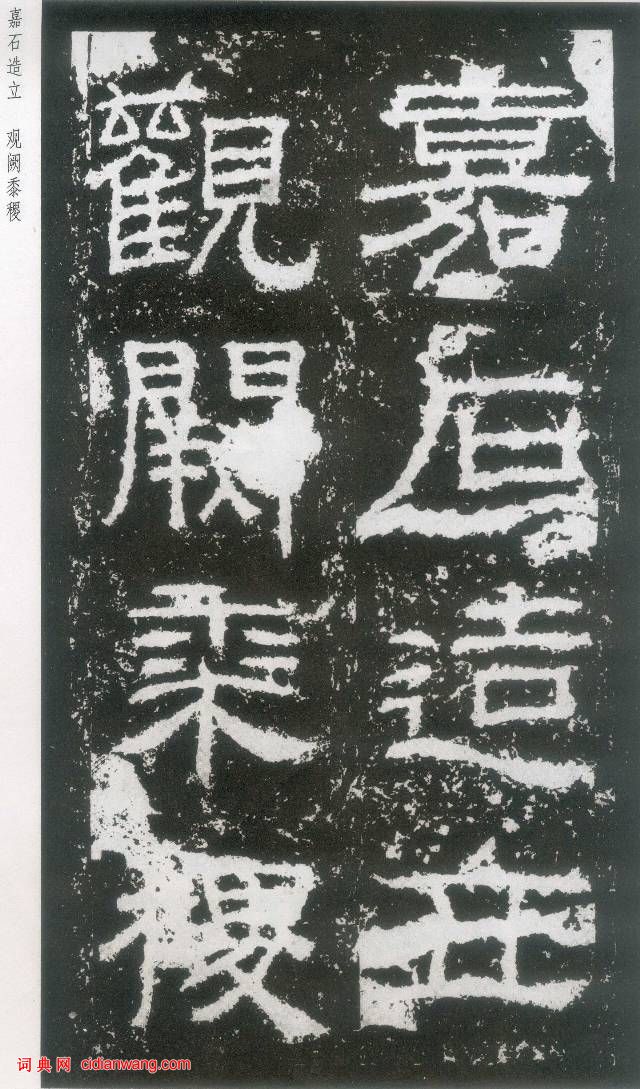 嘉石造立
觀闕黍稷
嘉石造立 观阙黍稷
词典网 cidianwang.com